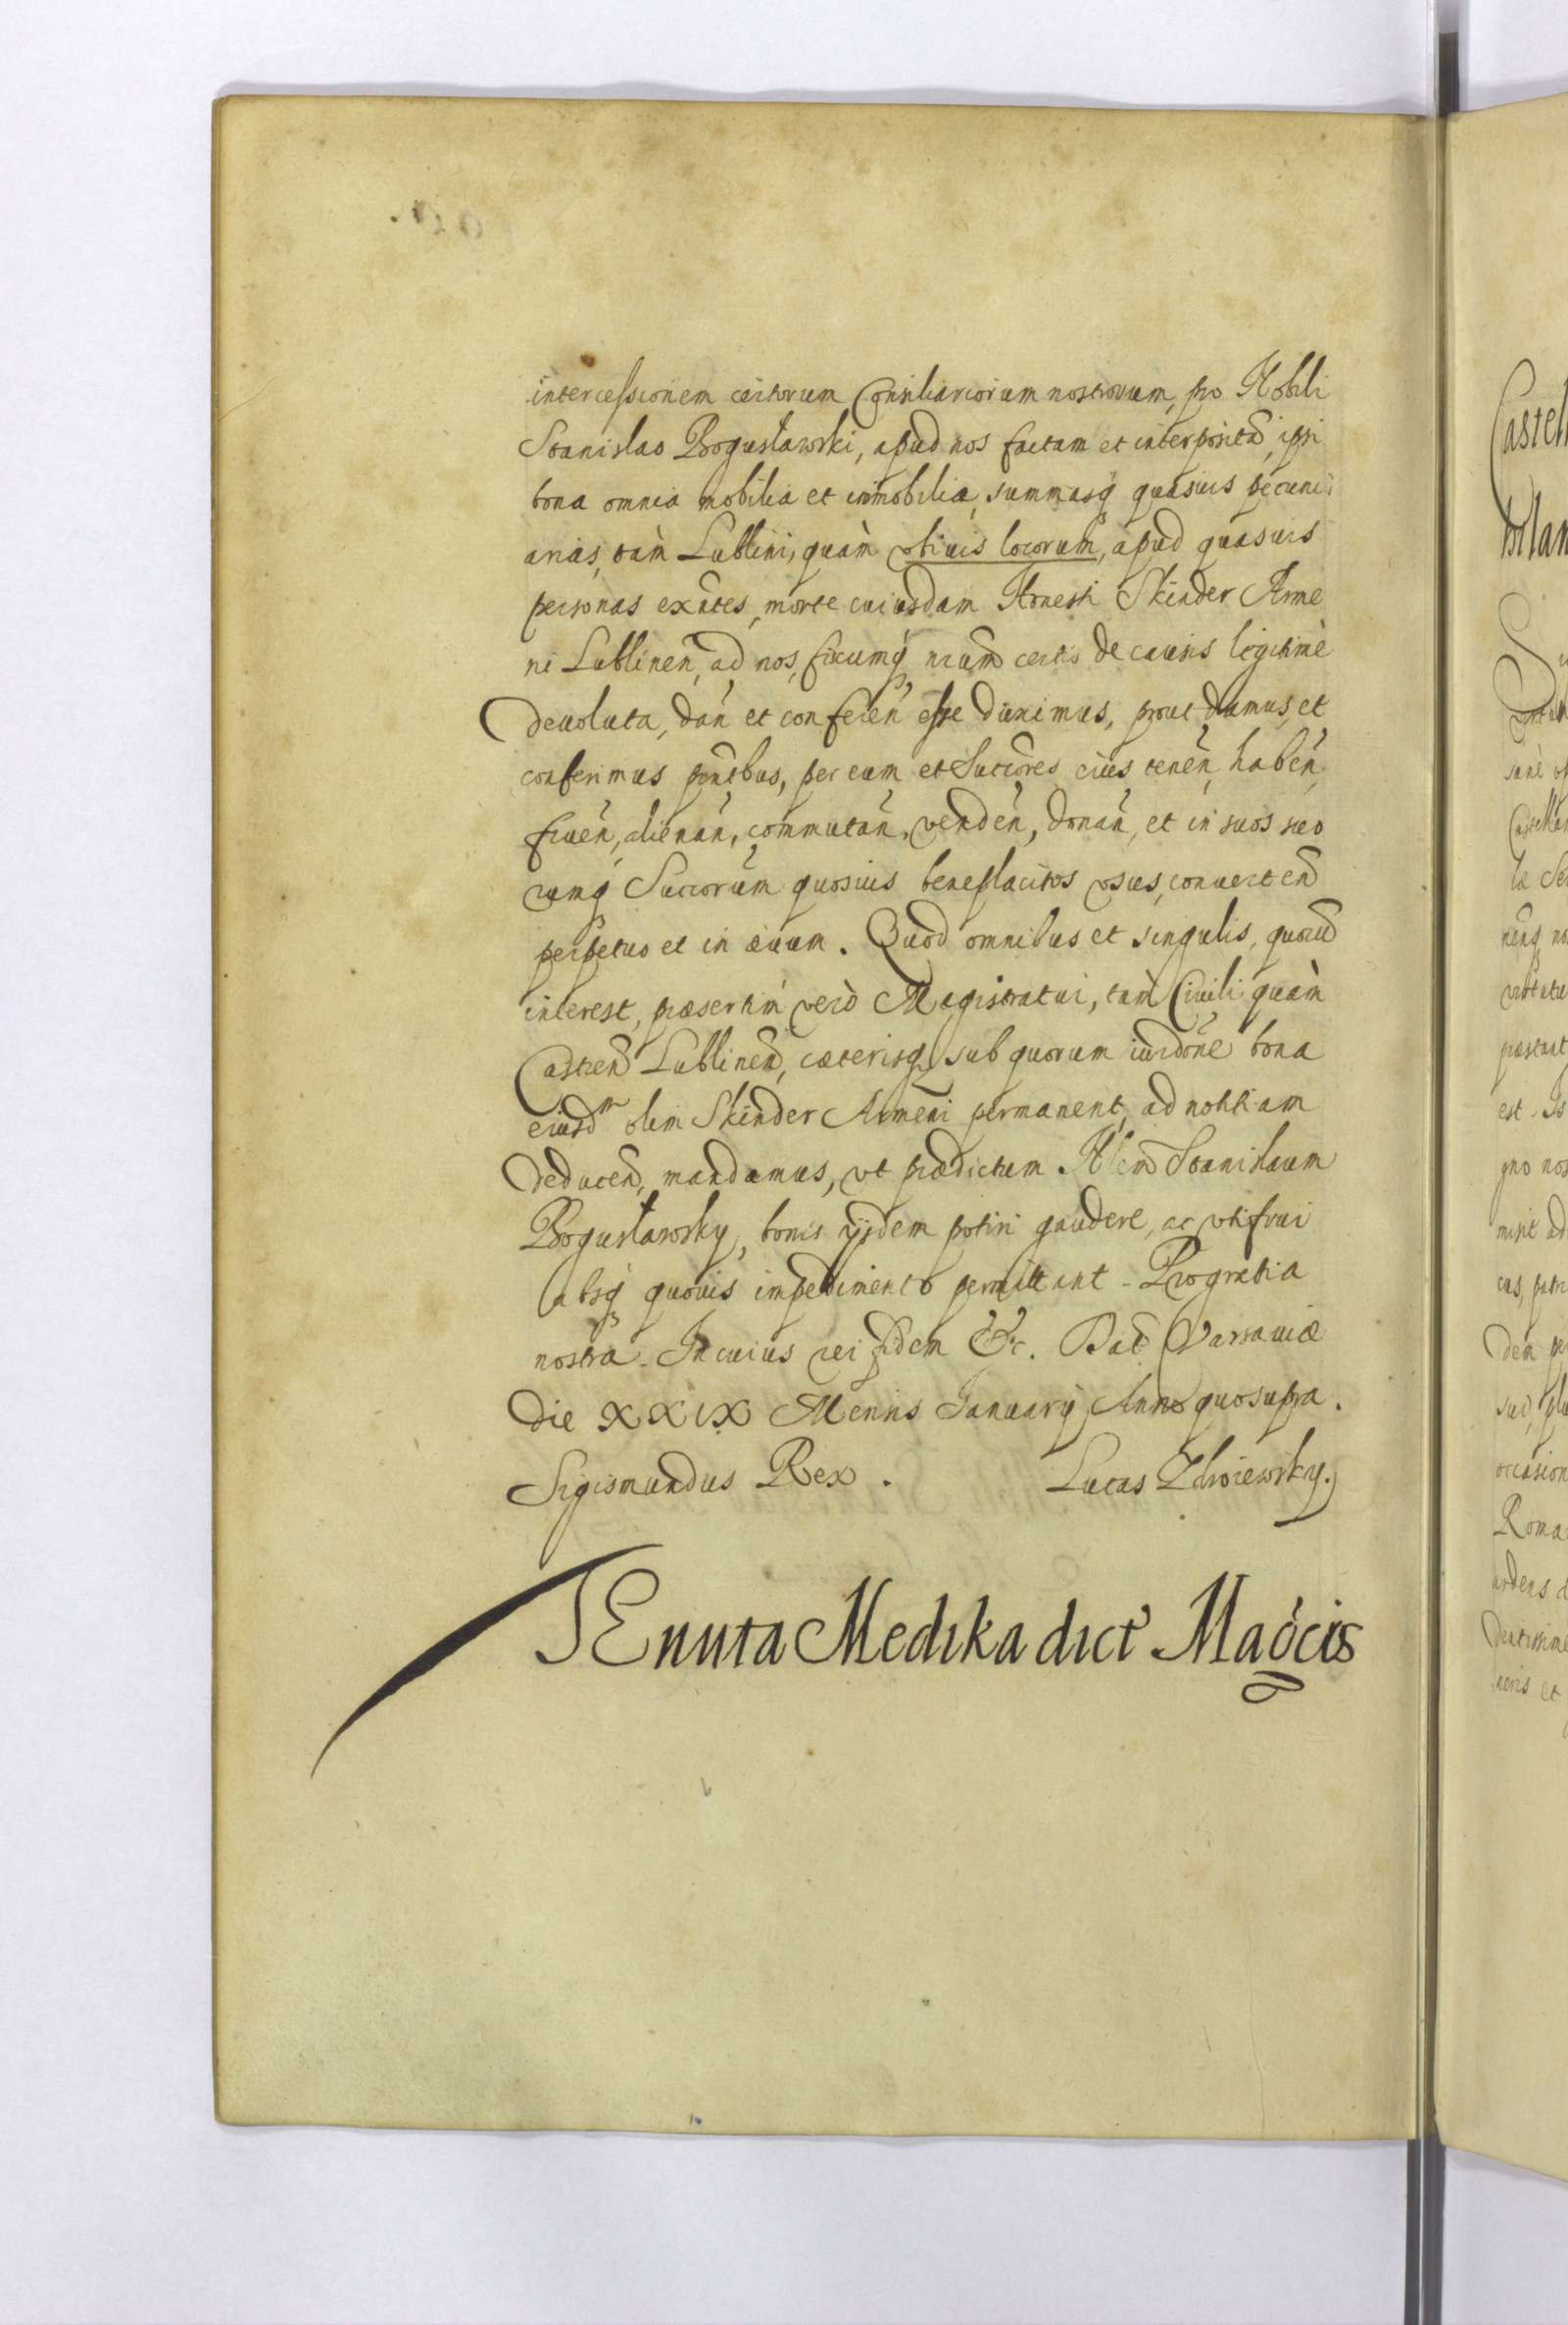 intercessionem certorum Consiliariorum nostrorum, pro Nobili
Stanislao Bogusławski, apud nos factam et interpositã, ipsi
bona omnia mobilia et immobilia, summasq quasuis pecuni
arias, tàm Lublini, quàm vbiuis locorum, apud quasuis
personas exñtes, morte cuiusdam Honesti Skinder Arme
ni Lublineñ, ad nos, fiscumq nrum certis de causis legitimè
deuoluta, dañ et confereñ esse duximus, prout damus, et
conferimus pñtibus, per eum et Succores eius, teneñ, habeñ,
frueñ, alienañ, commutañ, vendeñ, donañ, et in suos suo
rumq Succorum quosuis beneplacitos vsus, conuerteñ
perpetuo et in æuum. Quod omnibus et singulis, quorũ
interest, præsertim verò Magistratui, tàm Ciuili quàm
Castreñ Lublineñ, cæterisq sub quorum iurdõne bona
eiusdm olim Skinder Armeni permanent, ad notitiam
deduceñ, mandamus, vt prædictum Nlem Stanislaum
Bogusławsky, bonis ijsdem potiri gaudere, ac vtifrui
absq quouis impedimento permittant. Pro gratia
nostra. In cuius rei fidem &c. Dat Varsauiæ
die XXIX Mensis Ianuarij Anno quo supra.
Sigismundus Rex. Lucas Zdroiewsky.
TEnuta Medika dict Maocis
Castell